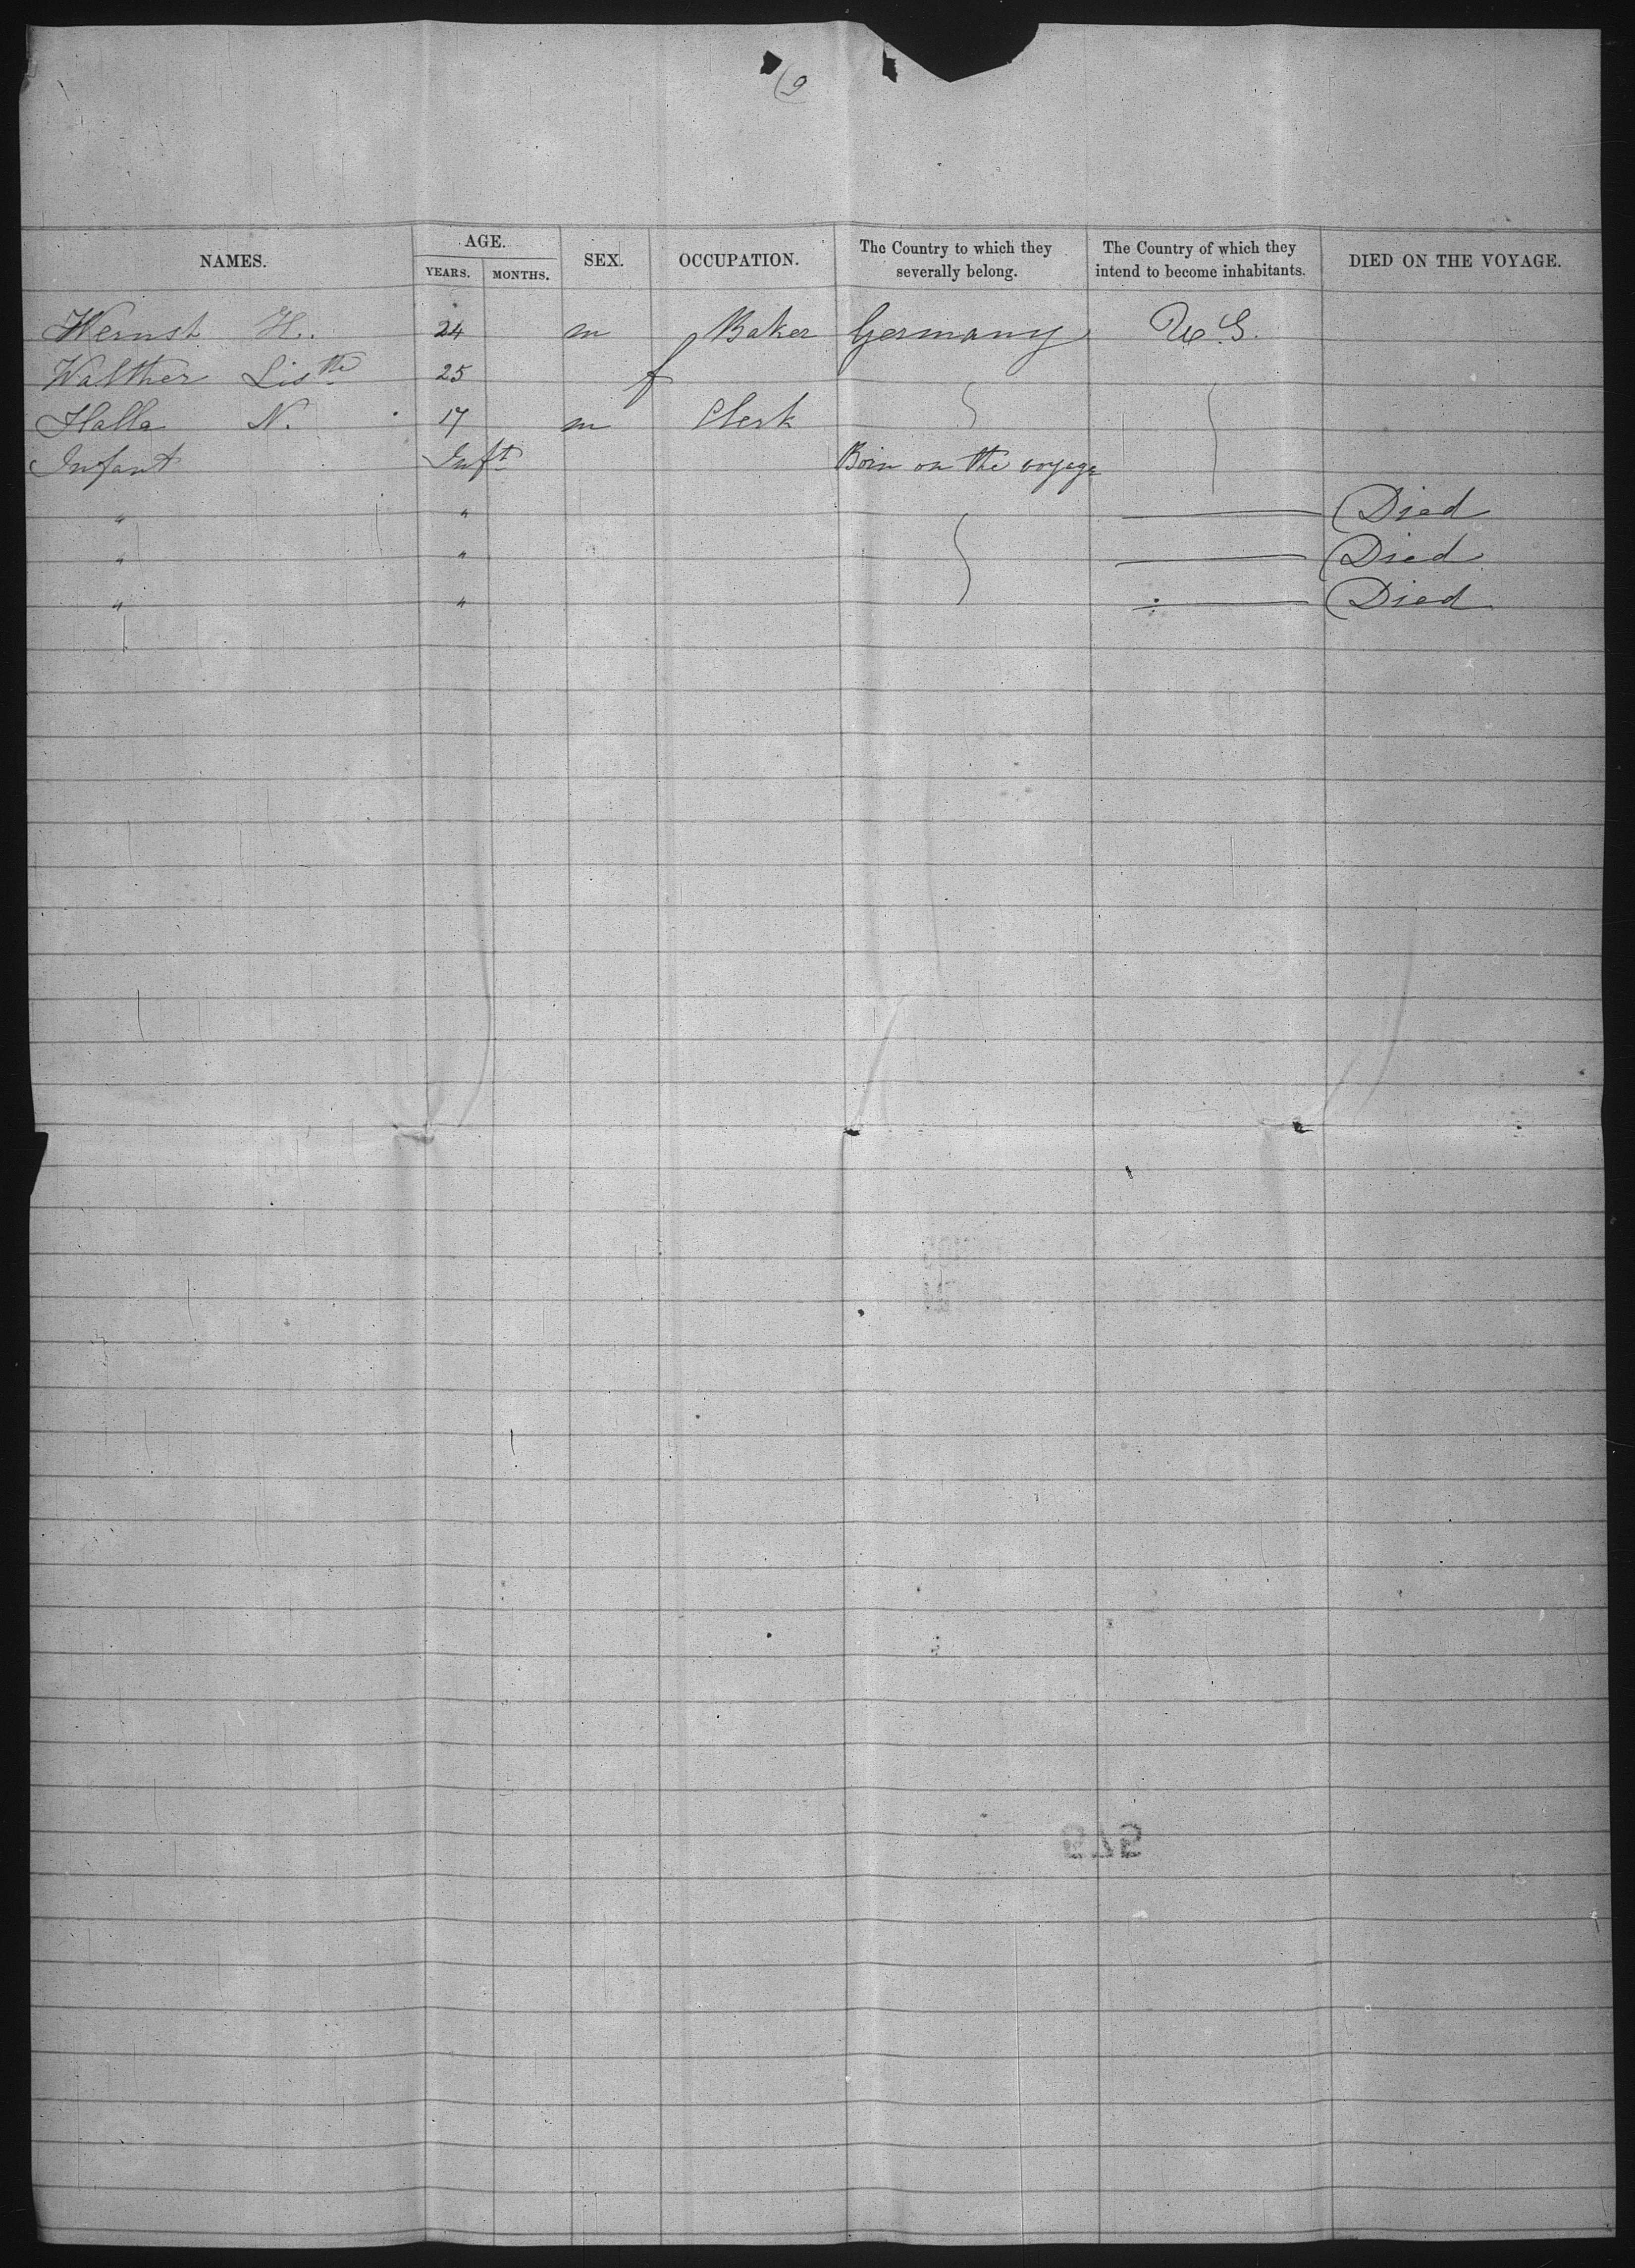 9
NAMES. AGE. SEX. OCCUPATION. The Country to which they severally belong. The Country of which they intend to become inhabitants. DIED ON THE VOYAGE.
YEARS. MONTHS.
Wernsh H. 24 m Baker Germany U.S.
Walther Lis the 25 f
Halla N. 17 m Clerk
Infant Inft Born on the voyage
" " Died
" " Died
" " Died